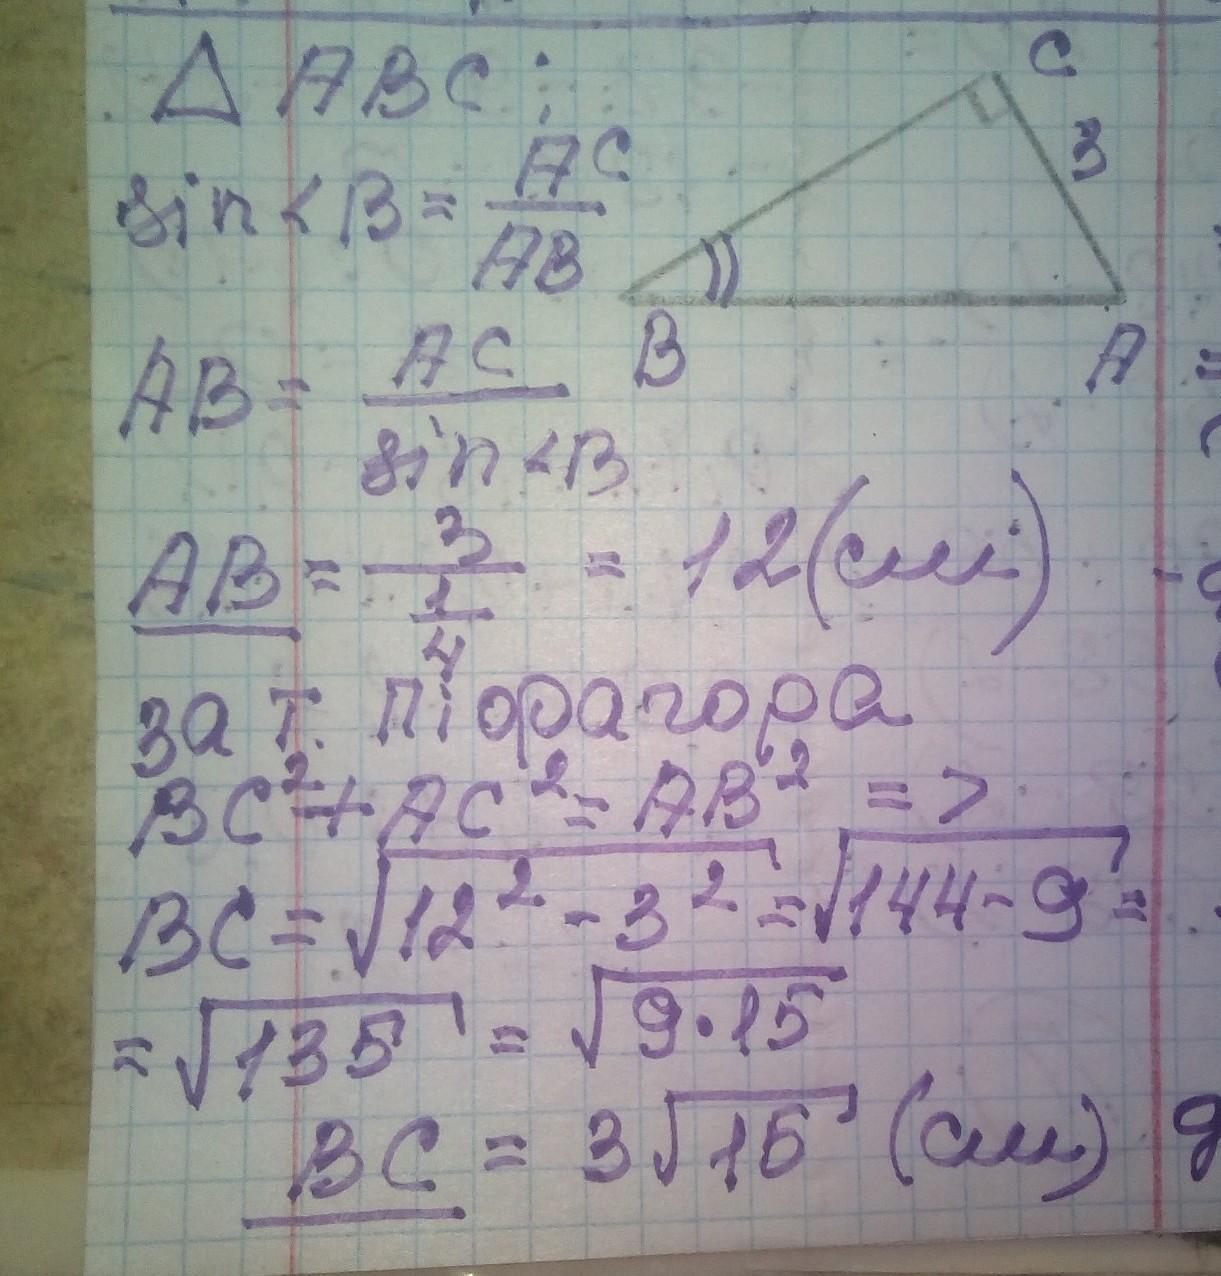 △ ABC:
sin<B = AC/AB
C
3
B
A
AB = AC/sin<B
AB = 3/(1/4) = 12(см)
за т. піорагора
BC² + AC² = AB² =>
BC = √12² - 3² = √144 - 9 =
= √135 = √9·15
BC = 3√15 (см)